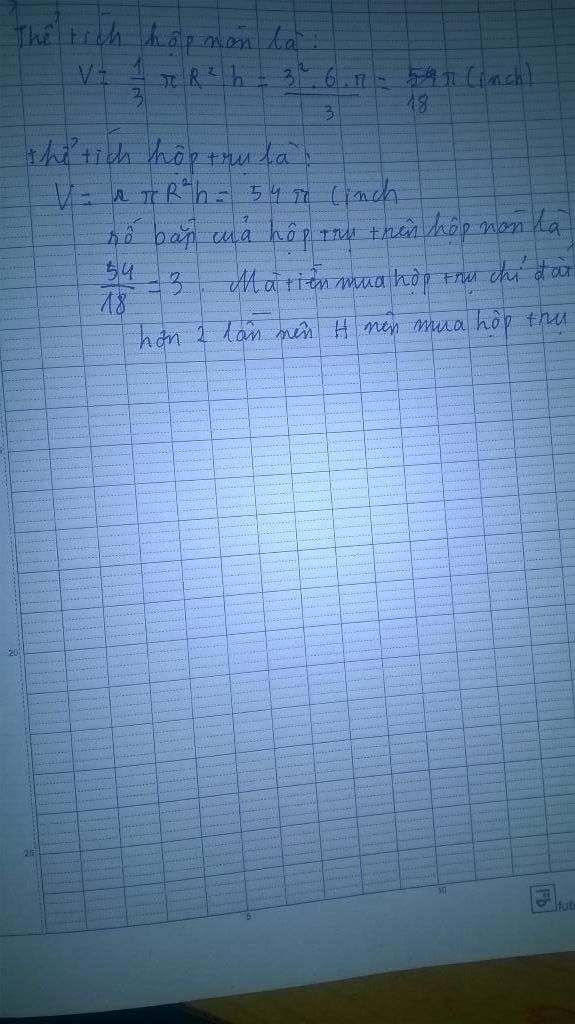 Thể tích hộp nón là:
V = 1/3 π R² h = 3².6.π/3 = 18 π (inch)
thể tích hộp trụ là:
V = π R² h = 54 π (inch
số bắp của hộp trụ trên hộp nón là
54/18 = 3. Mà tiền mua hộp trụ chỉ đắt
hơn 2 lần nên H nên mua hộp trụ
20
25
5
10